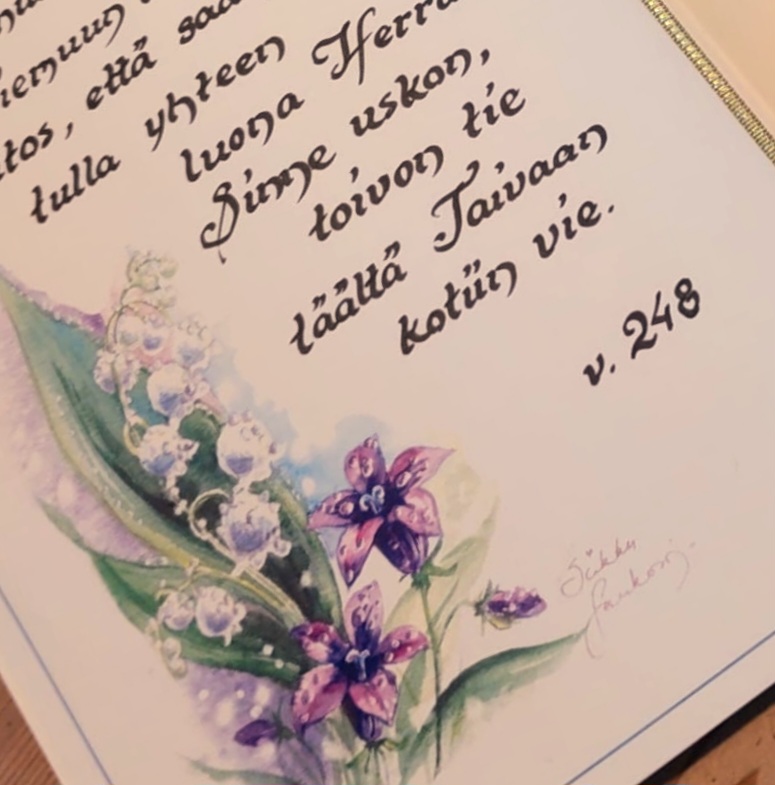 riemuun
tos, että saa
tulla yhteen
luona Herra
Sinne uskon,
toivon tie
täältä Taivaan
kotiin vie.
v. 248
Sirkku